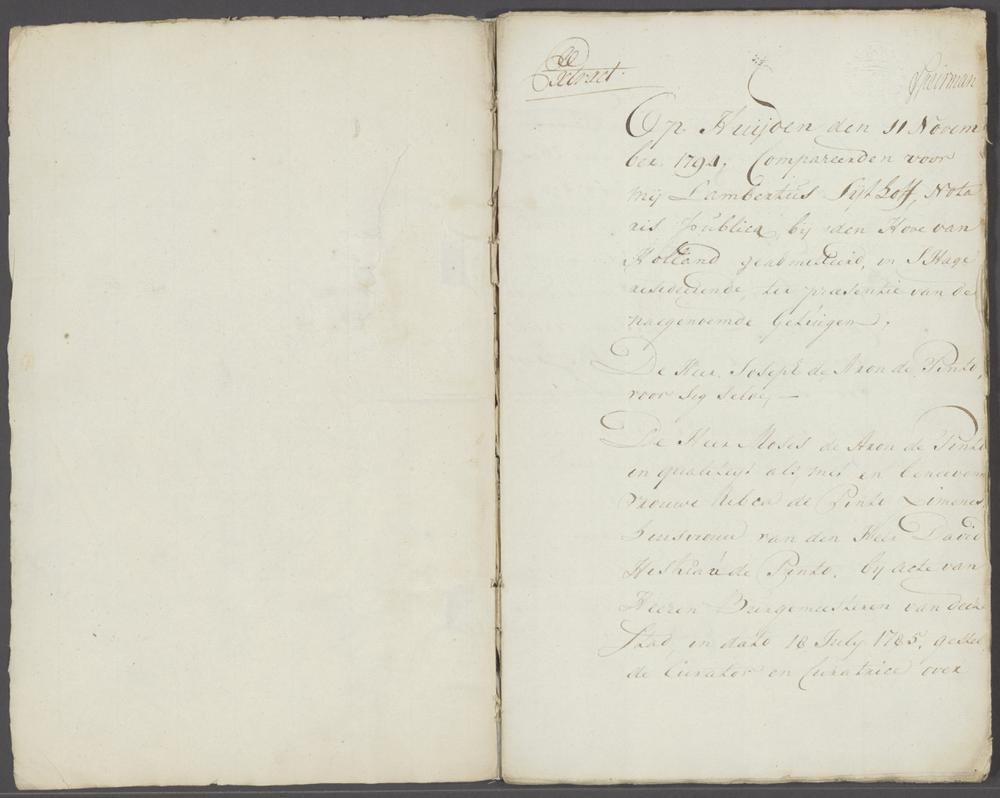 Extract.
Op Huijden den 11 Novem
ber 1791, Compareerden voor
mij Lambertus Sythoff, Nota
ris Publicq, bij den Hove van
Holland geadmitteerd, in S Hage
resideerende, ter presentie van de
naegenoemde Getuigen,
De Heer Joseph de Aron de Pinto,
voor sig selve, —
De Heer Moses de Aron de Pinto
in qualiteyt als met en beneevens
vrouwe de Pinto Ximenes
huisvrouw van den Heer David
Hiskia de Pinto, by acte van
Heeren Burgemeesteren van deeze
Stad, in dato 18 July 1785, gestel
de Curator en Curatrice over